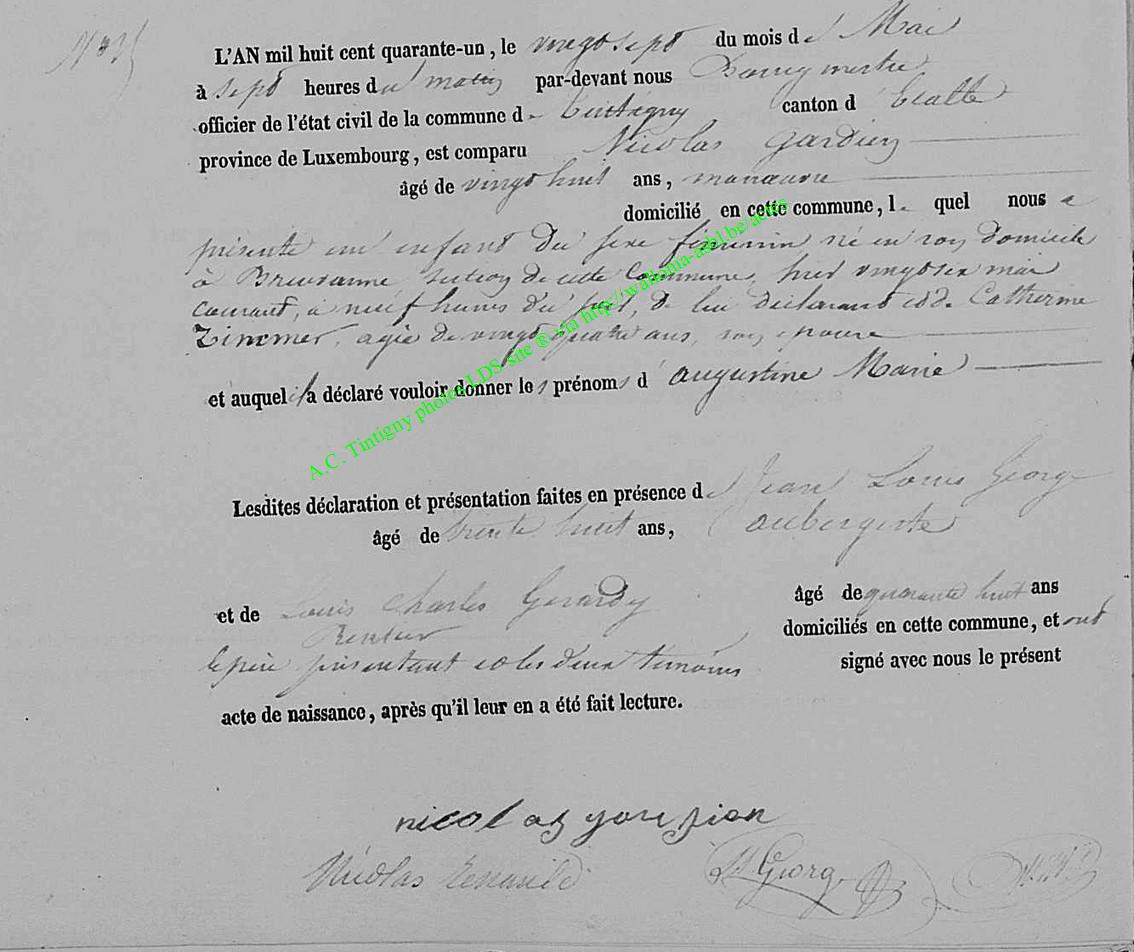 N° 35
L'AN mil huit cent quarante-un, le vingt sept du mois de Mai
à sept heures du matin par-devant nous Bourgmestre
officier de l'état civil de la commune de Tintigny canton d' Etalle
province de Luxembourg, est comparu Nicolas Gardien
âgé de vingt huit ans, manœuvre
domicilié en cette commune, le quel nous a
présenté un enfant du sexe féminin né en son domicile
à Breuvanne section de cette Commune, hier vingt six mai
courant, à neuf heures du soir, de lui déclarant et de Catherine
Zimmer, agée de vingt quatre ans, son épouse
et auquel il a déclaré vouloir donner les prénoms d' Augustine Marie
Lesdites déclaration et présentation faites en présence de Jean Louis George
âgé de trente huit ans, aubergiste
et de Louis Charles Gerardy âgé de quarante huit ans
Rentier domiciliés en cette commune, et ont
le père présentant et les deux témoins signé avec nous le présent
acte de naissance, après qu'il leur en a été fait lecture.
nicolas gardien
Nicolas George
A.C. Tintigny photos LDS site ® via http://wallonia-asbl.be/actes